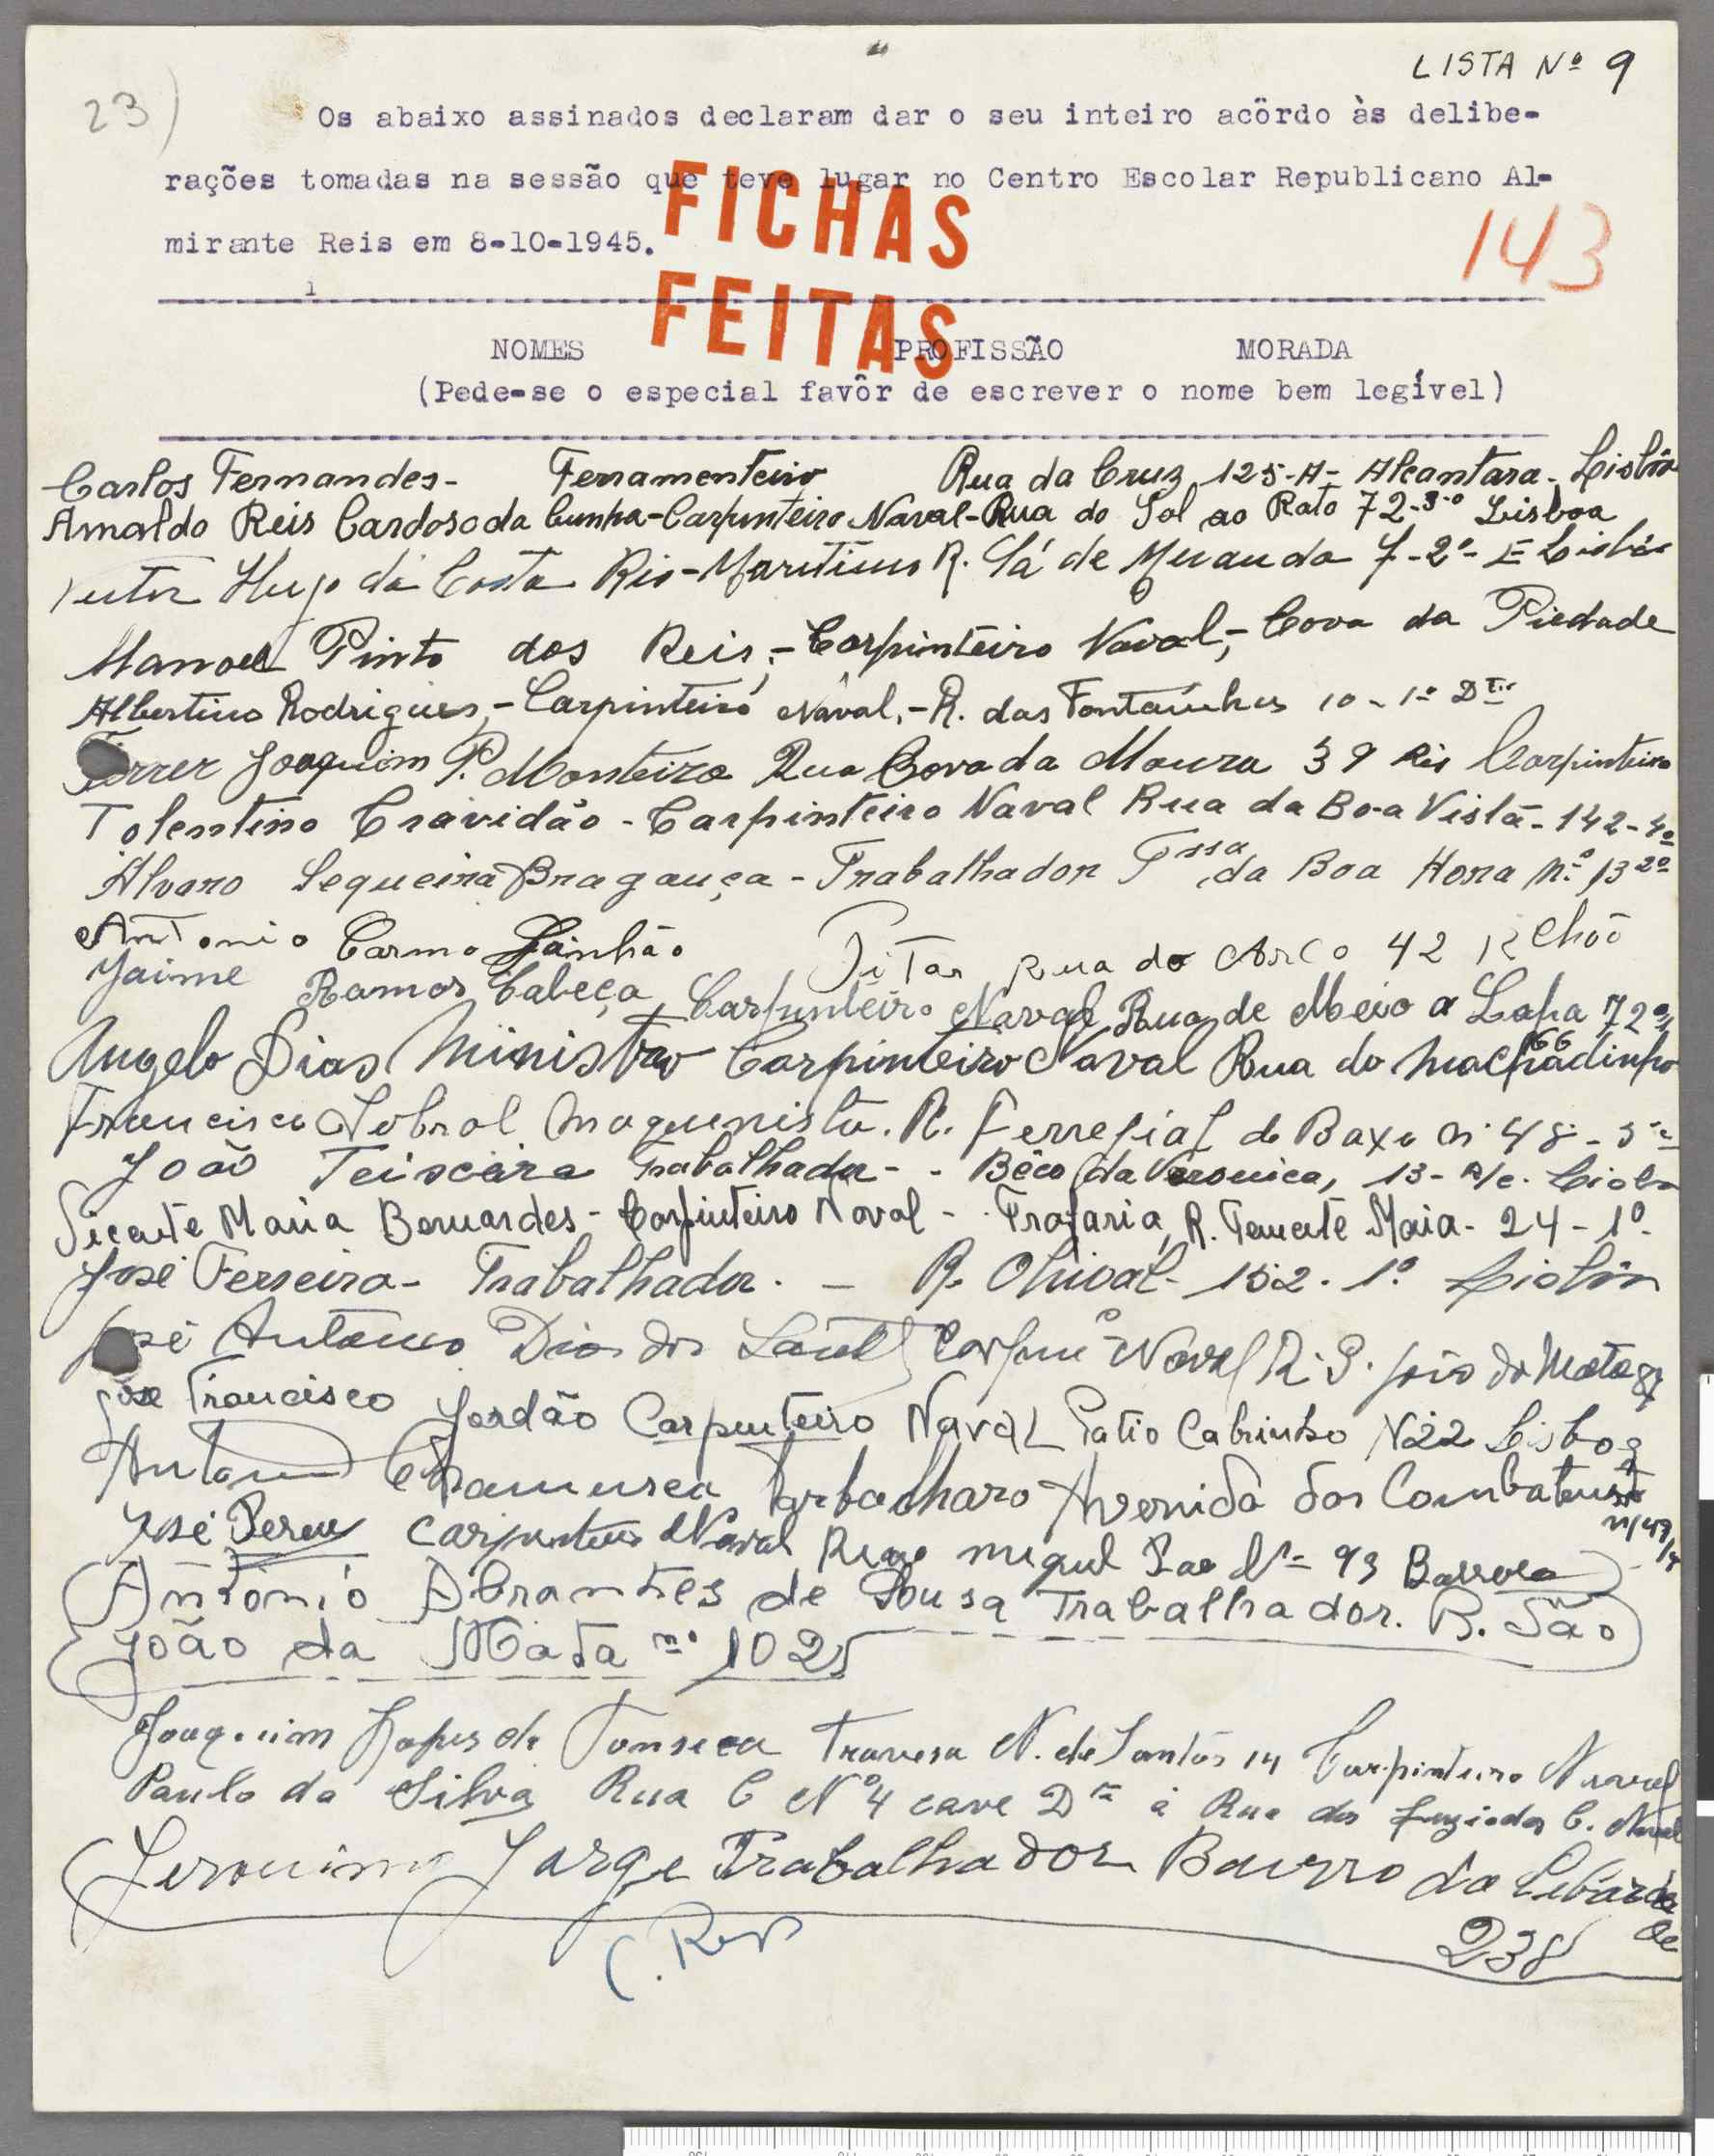 LISTA Nº 9
23)
Os abaixo assinados declaram dar o seu inteiro acôrdo às delibe-
rações tomadas na sessão que teve lugar no Centro Escolar Republicano Al-
mirante Reis em 8-10-1945.
FICHAS
FEITAS
143
NOMES PROFISSÃO MORADA
(Pede-se o especial favôr de escrever o nome bem legível)
Carlos Fernandes - Ferramenteiro Rua da Cruz 125-A - Alcantara - Lisbôa
Arnaldo Reis Cardoso da Cunha - Carpinteiro Naval - Rua do Sol ao Rato 72-3º Lisboa
Hugo da Costa Rio - Maritimo R. Sá de Miranda 7-2º-E Lisbôa
Manoel Pinto dos Reis, - Carpinteiro Naval, - Cova da Piedade
Albertino Rodrigues, - Carpinteiro Naval, - R. das Fontaínhas 10-1º Dto
Ferrer Joaquim P. Monteiro Rua Cova da Moura 39 Carpinteiro
Tolentino Cravidão - Carpinteiro Naval Rua da Boa Vista - 142-4º
Alvaro Sequeira Bragança - Trabalhador Tssa da Boa Hora Nº 13 2º
Antonio Carmo Rua do Arco 42 R Chão
Jaime Ramos Cabeça Carpinteiro Naval Rua de Meio a Lapa 72
Angelo Dias Ministro Carpinteiro Naval Rua do Machadinho 66
Francisco Sobral Maquenista. R. Ferregial de Baxo 48-3º
João Teiscera Trabalhador - - Bêco da Veronica, 13-R/c. Lisboa
Vicente Maria Bernardes - Carpinteiro Naval - Trafaria, R. Tenente Maia - 24-1º.
José Ferreira - Trabalhador. - R. Olival - 152.1º Lisbôa
José Antonio Dias dos Santos Naval R. S. João da Mata 87
José Francisco Jordão Carpinteiro Naval Patio Cabrinho N 22 Lisboa
Antonio Chamusca Avenida dos
José Carpinteiro Naval Rua Miguel Pae Nº 93
Antonio Abrantes de Sousa Trabalhador. R. São
João da Mata nº 102
Joaquim Lopes da Fonseca Travesa N. de Santos 14 Carpinteiro Naval
Paulo da Silva Rua C Nº 4 cave Dto á Rua dos C. Naval
Jeronimo Jorge Trabalhador Bairro da
238